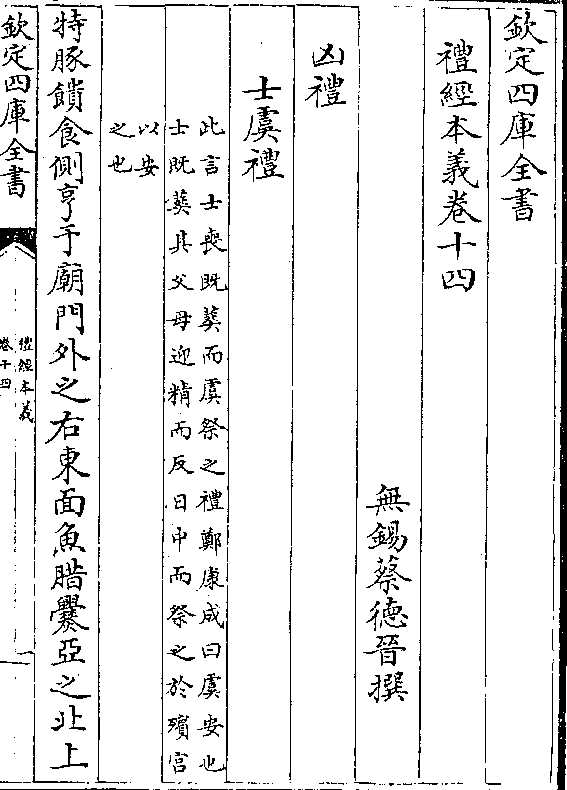 欽定四庫全書
禮經本義卷十四
無錫蔡德晉撰
凶禮
士虞禮
此言士喪既葬而虞祭之禮鄭康成曰虞安也
士既葬其父母迎精而反日中而祭之於殯宫
以安
之也
特豚饋食側亨于廟門外之右東面魚腊爨亞之北上
欽定四庫全書
禮經本義
卷十四